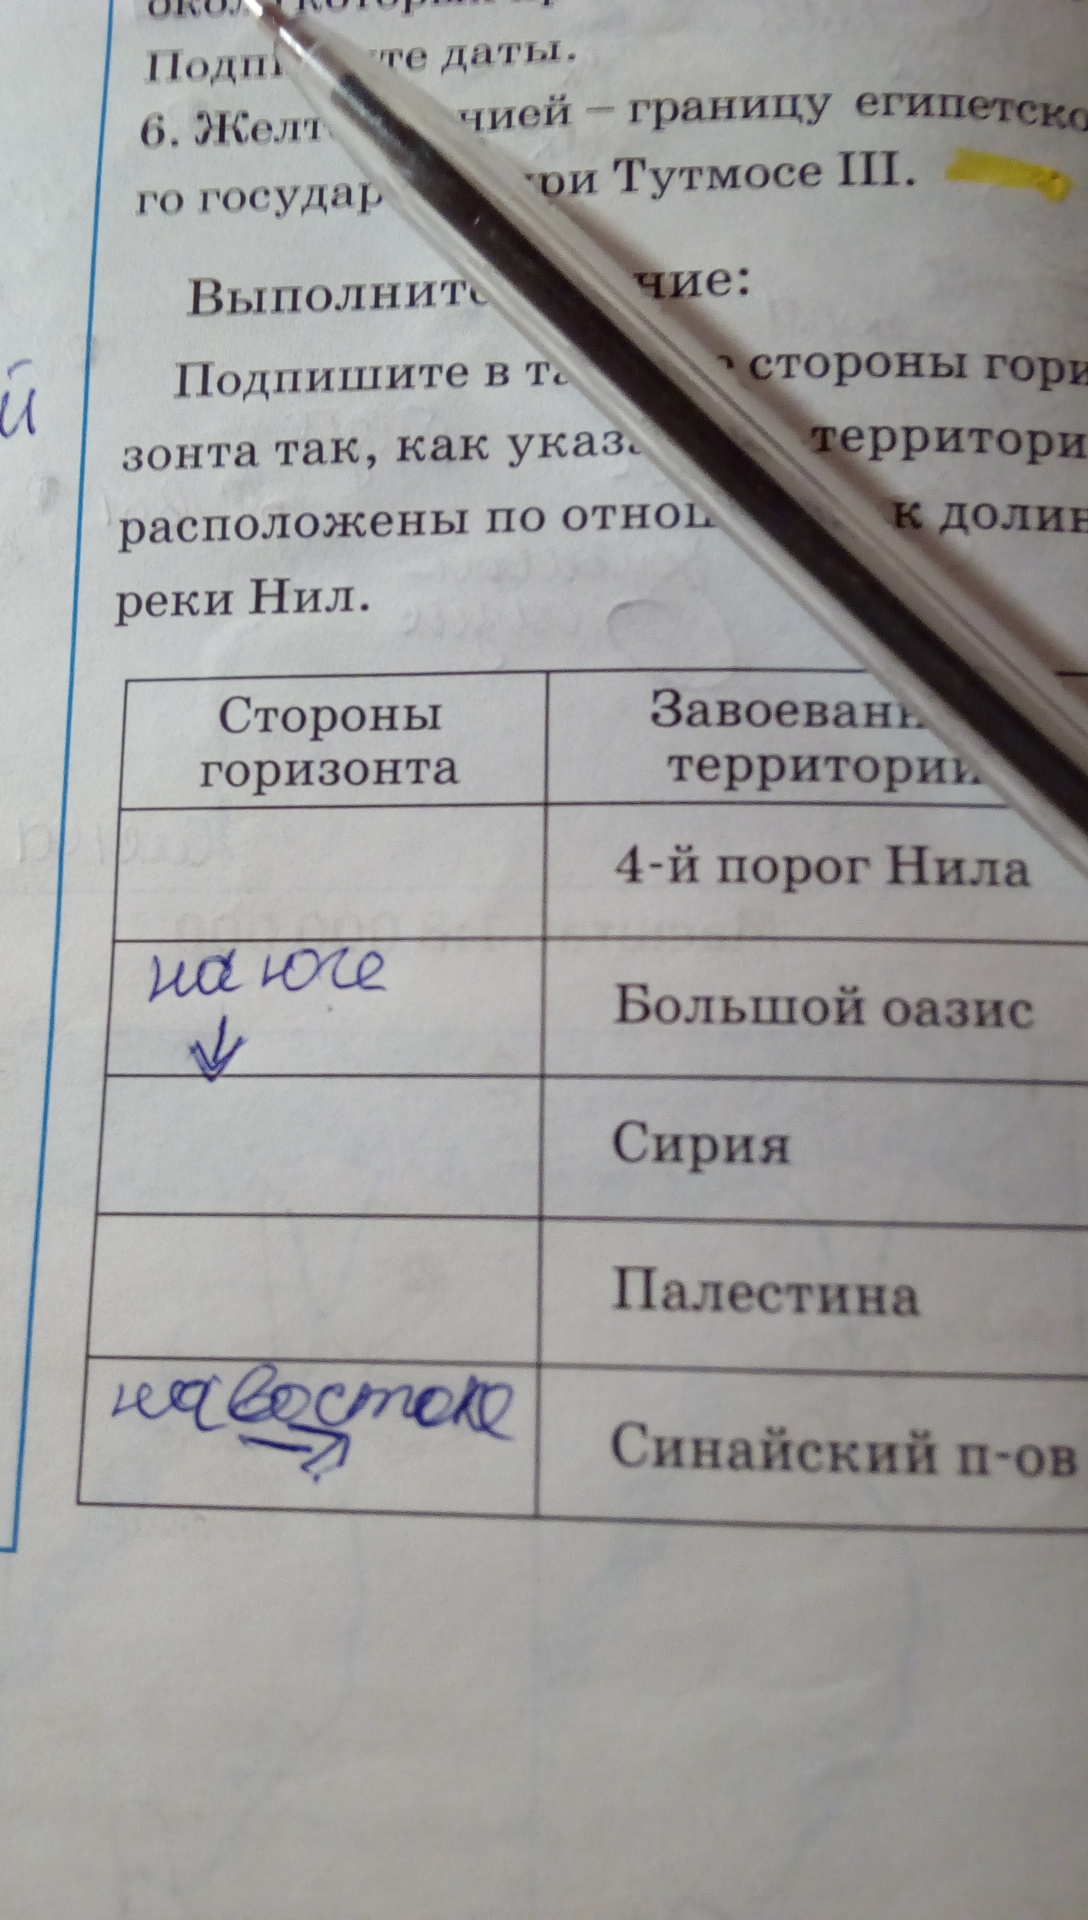 Подпи те даты.
6. Желт нией – границу египетско
го государ при Тутмосе III.
Выполните ние:
Подпишите в та стороны гори
зонта так, как указа территори
расположены по отнош к долин
реки Нил.
Стороны
горизонта
Завоеванн
территории
4-й порог Нила
на юге
Большой оазис
Сирия
Палестина
на востоке
Синайский п-ов